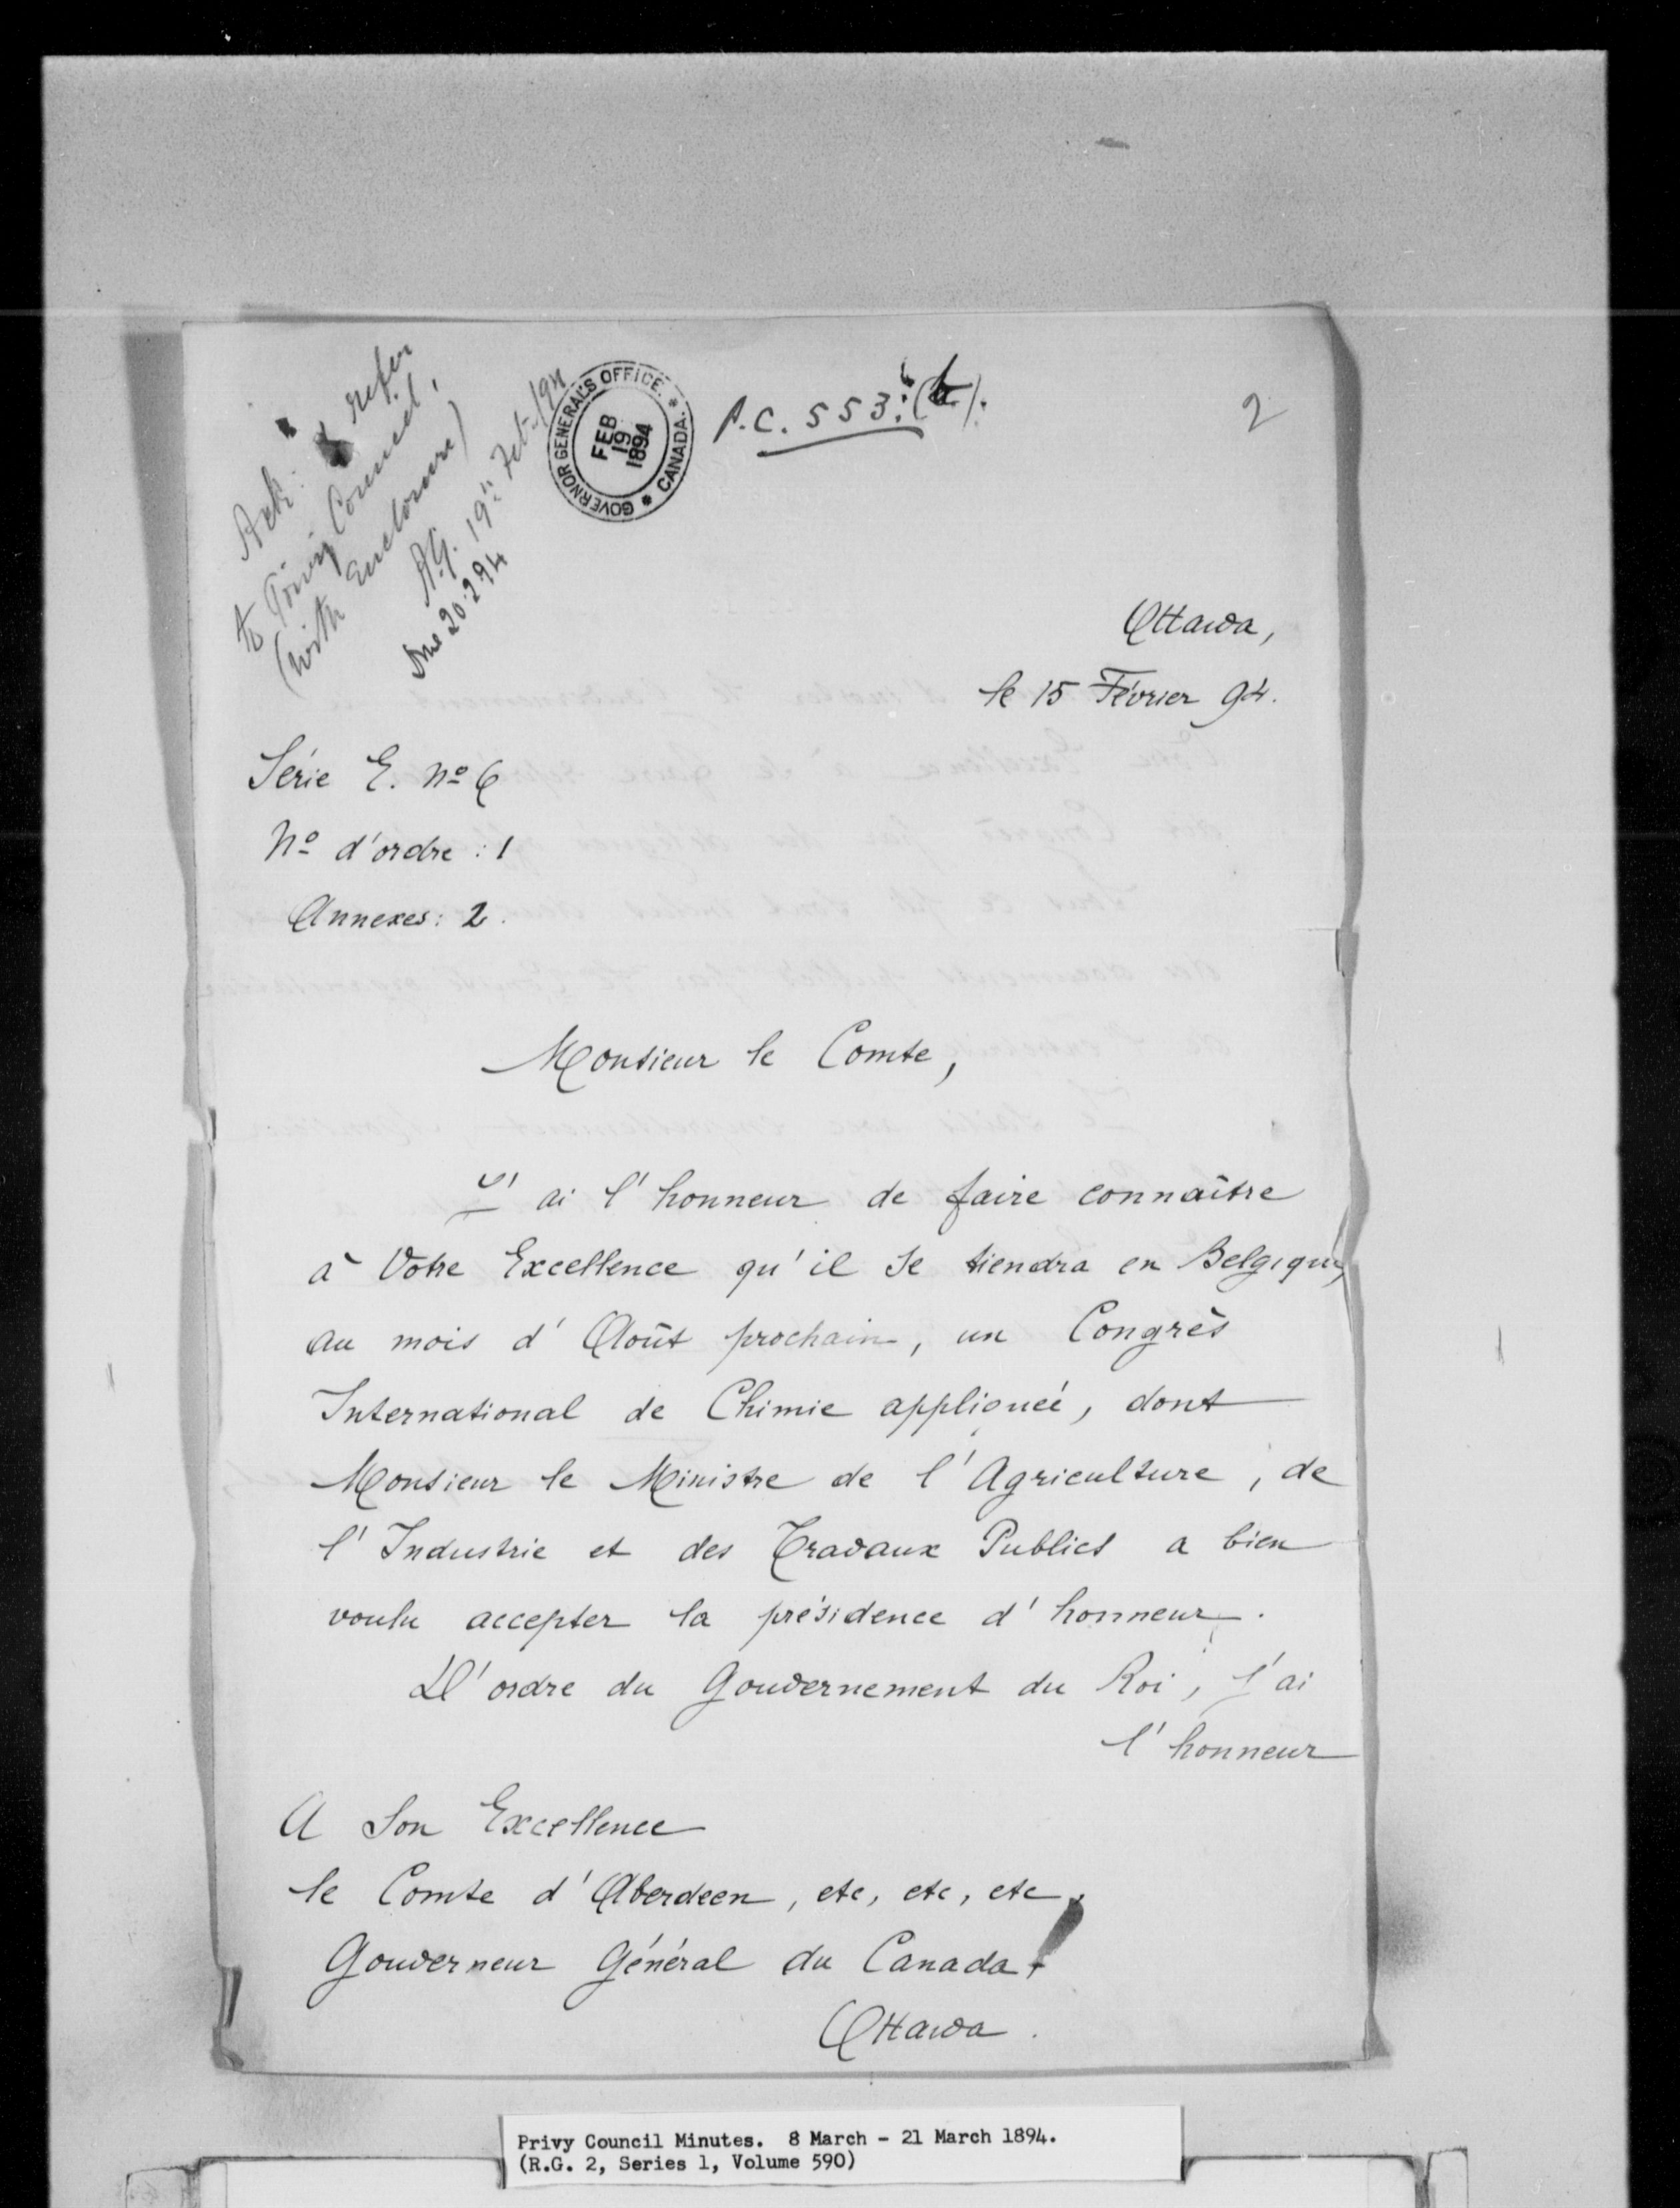 Ack: & refer
to Privy Council,
(with Enclosure)
A.G. 19th Feb/94
20.2.94
GOVERNOR GENERAL'S OFFICE. * CANADA. *
FEB
19
1894
P.C. 553: (b).
2
Ottawa,
le 15 Février 94.
Série E. Nº 6
Nº d'ordre : 1
Annexes : 2.
Monsieur le Comte,
J'ai l'honneur de faire connaître
à Votre Excellence qu'il se tiendra en Belgique,
au mois d'Août prochain, un Congrès
International de Chimie appliquée, dont
Monsieur le Ministre de l'Agriculture, de
l'Industrie et des Travaux Publics a bien
voulu accepter la présidence d'honneur.
D'ordre du Gouvernement du Roi, j'ai
l'honneur
A Son Excellence
le Comte d'Aberdeen, etc, etc, etc,
Gouverneur Général du Canada
Ottawa.
Privy Council Minutes. 8 March - 21 March 1894.
(R.G. 2, Series 1, Volume 590)